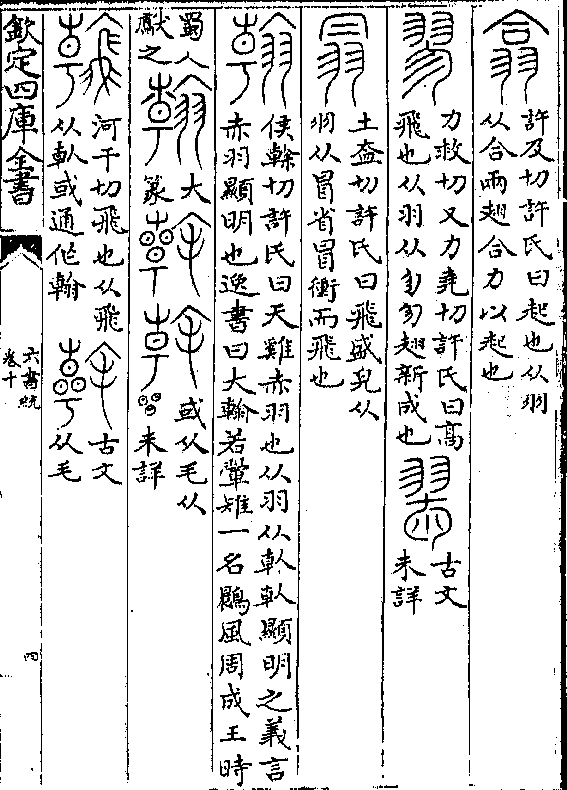 翕
許及切許氏曰起也从羽
从合兩翅合力以起也
翏
力救切又力堯切許氏曰高
飛也从羽从㐱㐱翅新成也
古文
未詳
土盍切許氏曰飛盛皃从
羽从冒省冒衝而飛也
翰
侯榦切許氏曰天雞赤羽也从羽从倝倝顯明之義言
赤羽顯明也逸書曰大翰若翬雉一名鷐風周成王時
蜀人
獻之
大
篆
或从毛从
未詳
河干切飛也从飛
从倝或通作翰
古文
从毛
欽定四庫全書
六書統
卷十
四